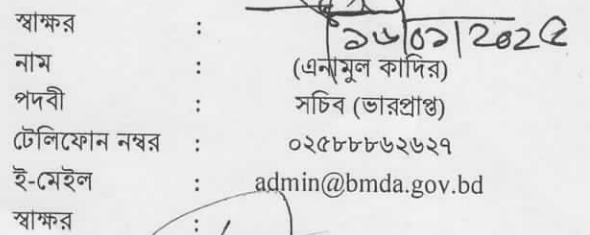 স্বাক্ষর :
১৬/০১/2025
নাম : (এনামুল কাদির)
পদবী : সচিব (ভারপ্রাপ্ত)
টেলিফোন নম্বর : ০২৫৮৮৮৬২৬২৭
ই-মেইল : admin@bmda.gov.bd
স্বাক্ষর :